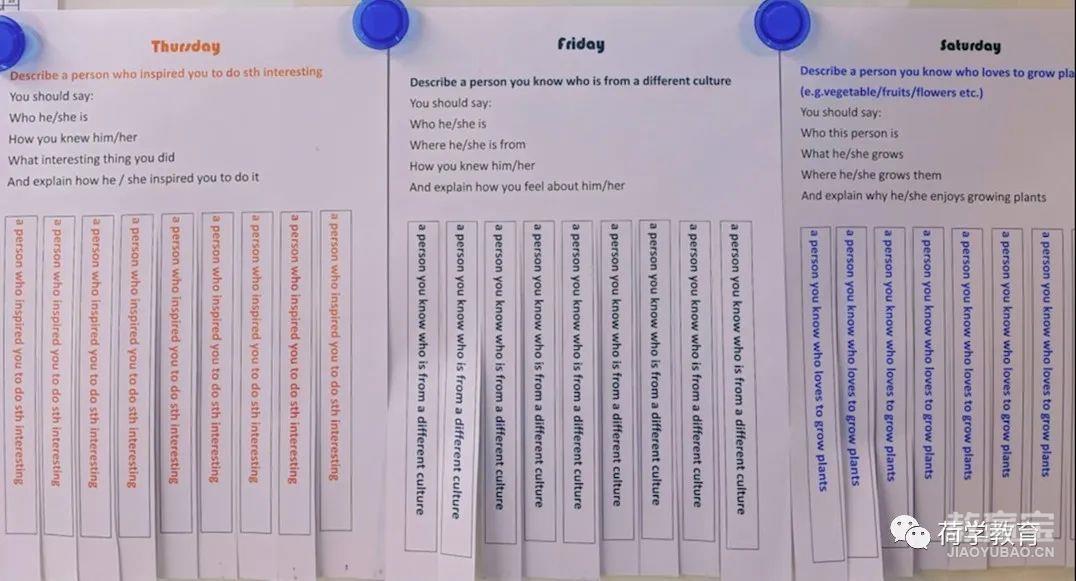 Thursday
Describe a person who inspired you to do sth interesting
You should say:
Who he/she is
How you knew him/her
What interesting thing you did
And explain how he / she inspired you to do it
a person who inspired you to do sth interesting
a person who inspired you to do sth interesting
a person who inspired you to do sth interesting
a person who inspired you to do sth interesting
a person who inspired you to do sth interesting
a person who inspired you to do sth interesting
a person who inspired you to do sth interesting
a person who inspired you to do sth interesting
a person who inspired you to do sth interesting
Friday
Describe a person you know who is from a different culture
You should say:
Who he/she is
Where he/she is from
How you knew him/her
And explain how you feel about him/her
a person you know who is from a different culture
a person you know who is from a different culture
a person you know who is from a different culture
a person you know who is from a different culture
a person you know who is from a different culture
a person you know who is from a different culture
a person you know who is from a different culture
a person you know who is from a different culture
a person you know who is from a different culture
Saturday
Describe a person you know who loves to grow pla
(e.g.vegetable/fruits/flowers etc.)
You should say:
Who this person is
What he/she grows
Where he/she grows them
And explain why he/she enjoys growing plants
a person you know who loves to grow plants
a person you know who loves to grow plants
a person you know who loves to grow plants
a person you know who loves to grow plants
a person you know who loves to grow plants
a person you know who loves to grow plants
a person you know who loves to grow plants
教育宝
荷学教育
JIAOYUBAO.CN